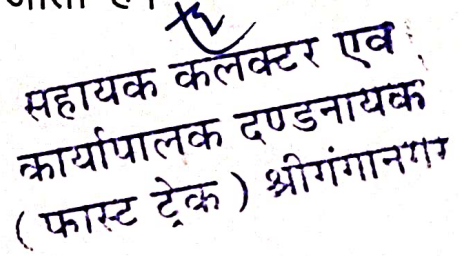 सहायक कलेक्टर एवं
कार्यापालक दण्डनायक
( फास्ट ट्रेक ) श्रीगंगानगर